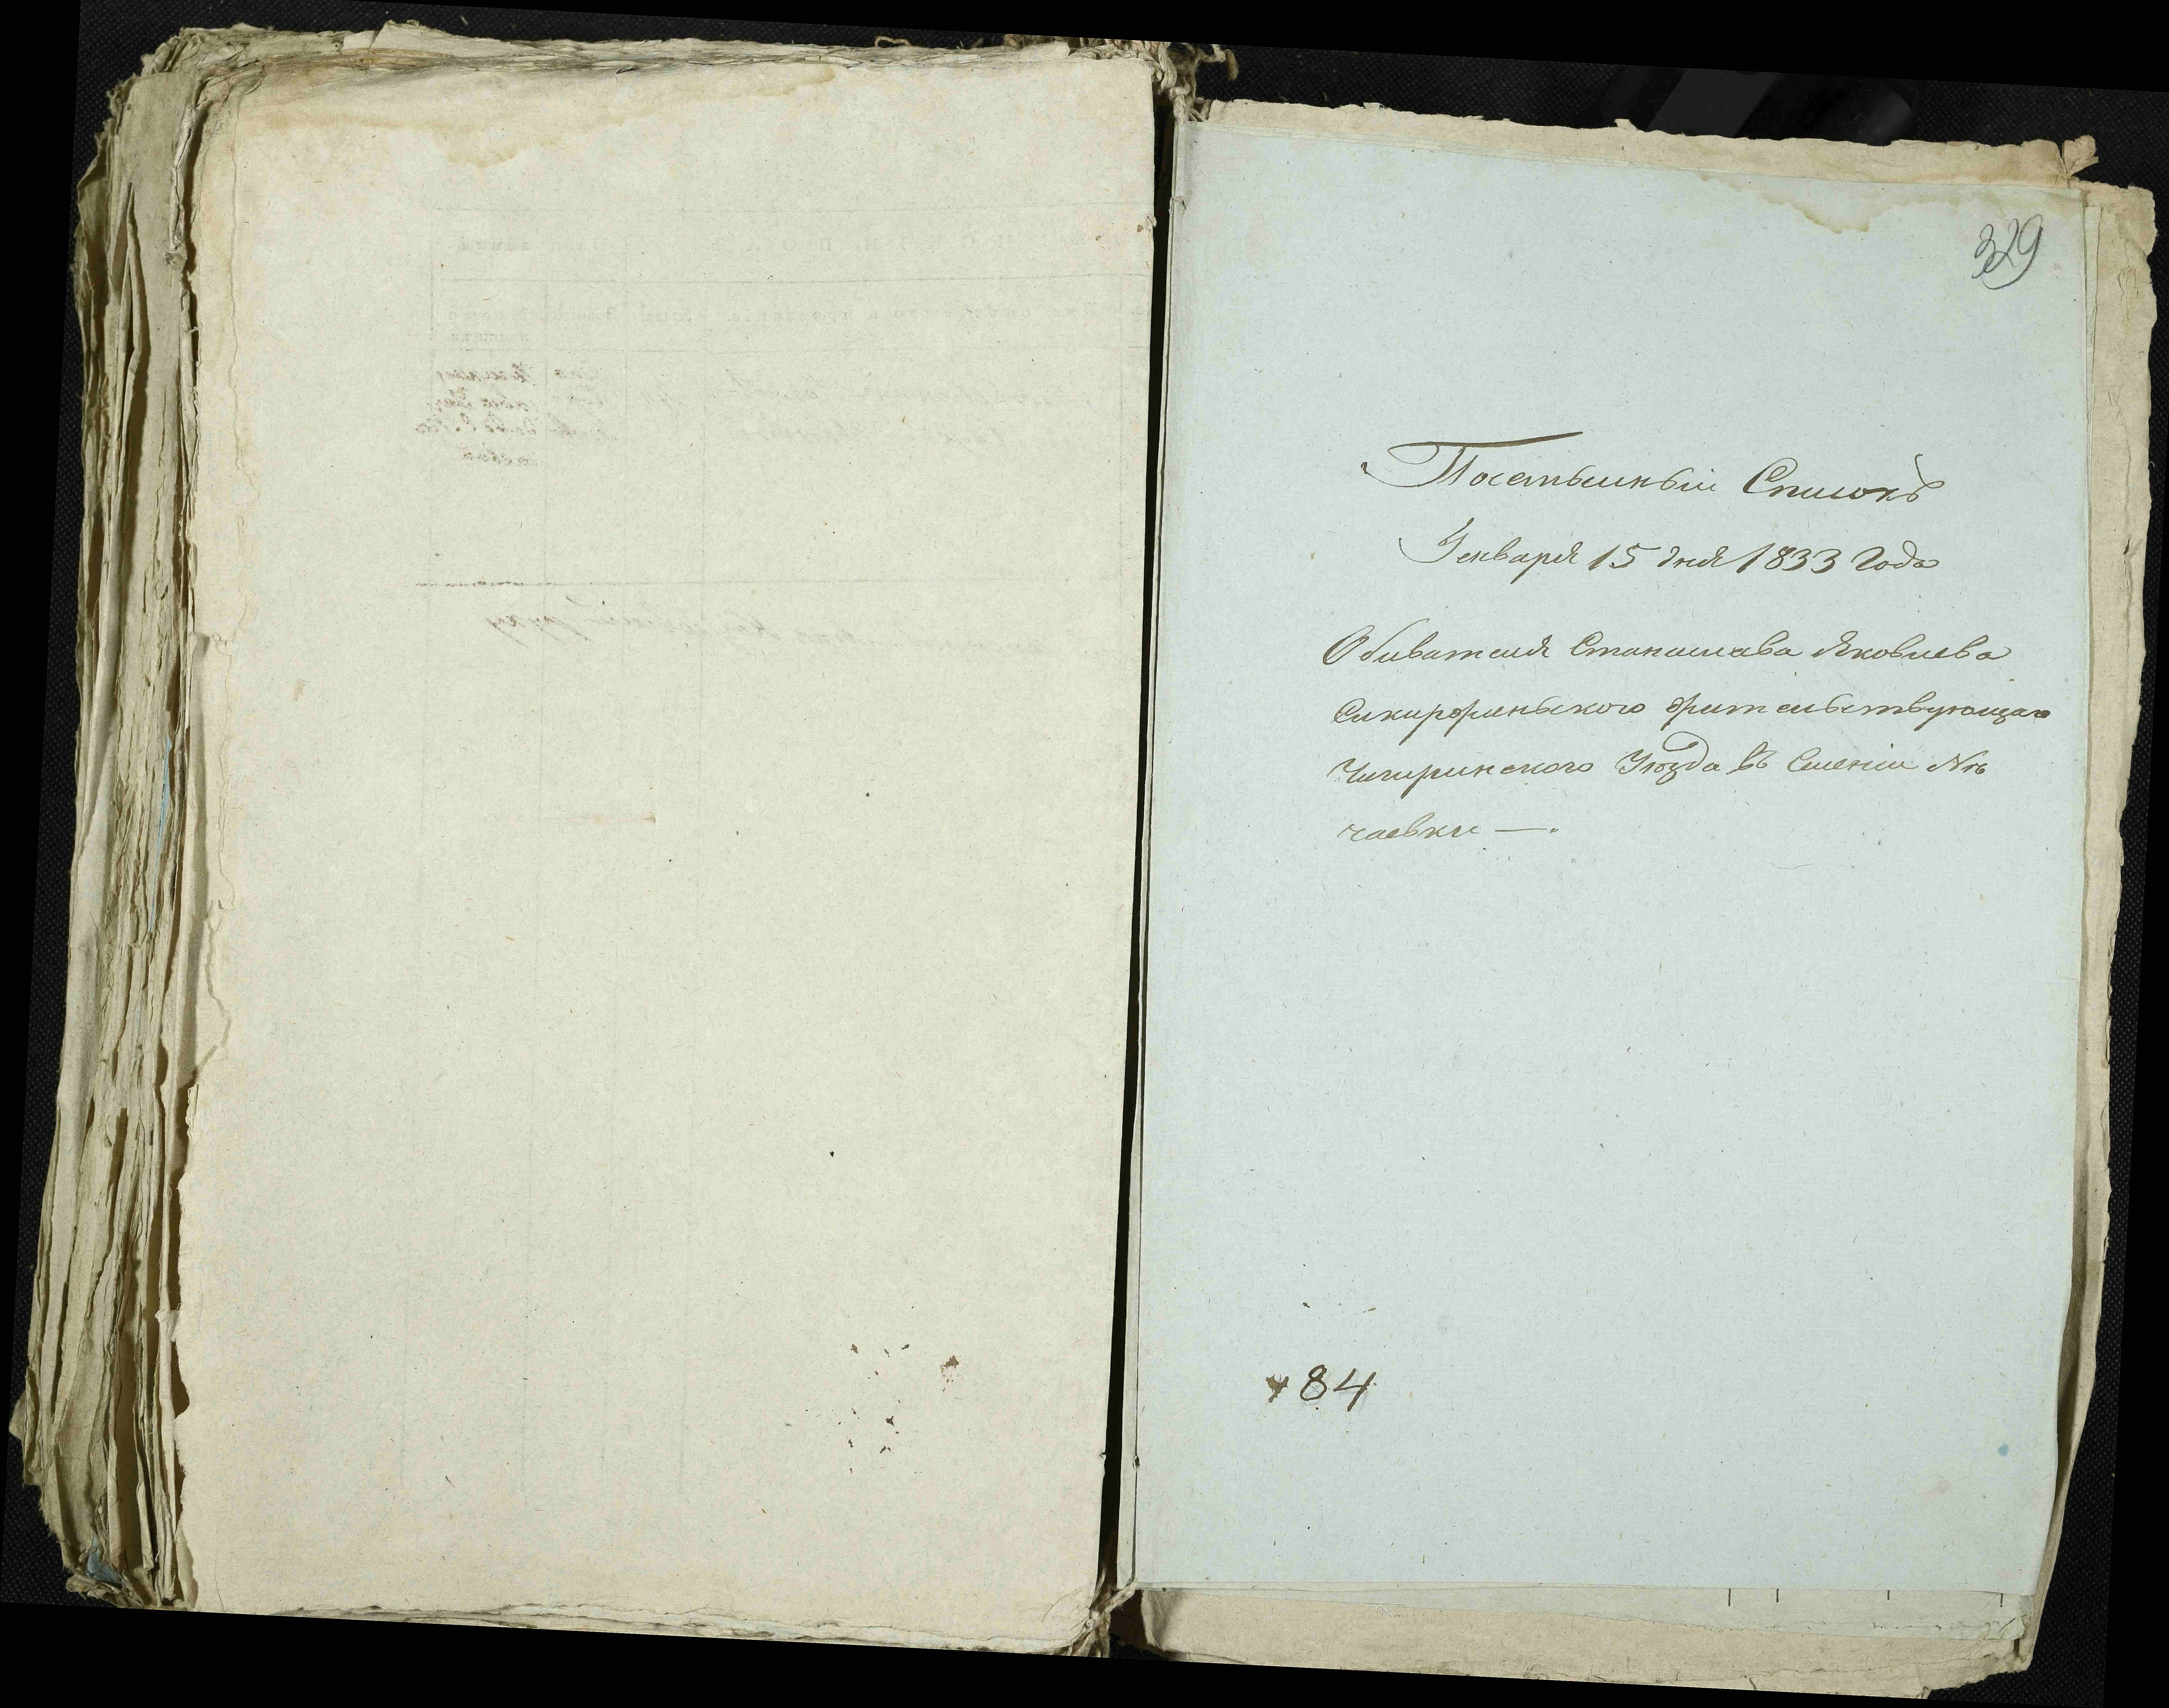 329
Посемейный Списокъ
Генваря 15 дня 1833 Года
Обивателя Станислава Яковлева
жительствующаго
Чигиринского Уюзда въ Селенiи Не
чаевки —.
84